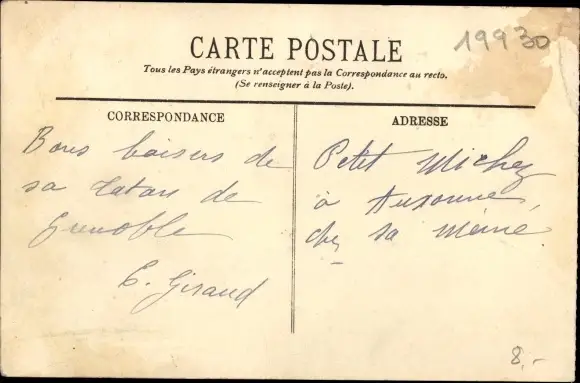 19930
CARTE POSTALE
Tous les Pays étrangers n'acceptent pas la Correspondance au recto.
(Se renseigner à la Poste).
CORRESPONDANCE
Bons baisers de
sa tatan de
Grenoble
E. Giraud
ADRESSE
Petit Michez
à Auxonne,
chez sa mémé
8,-